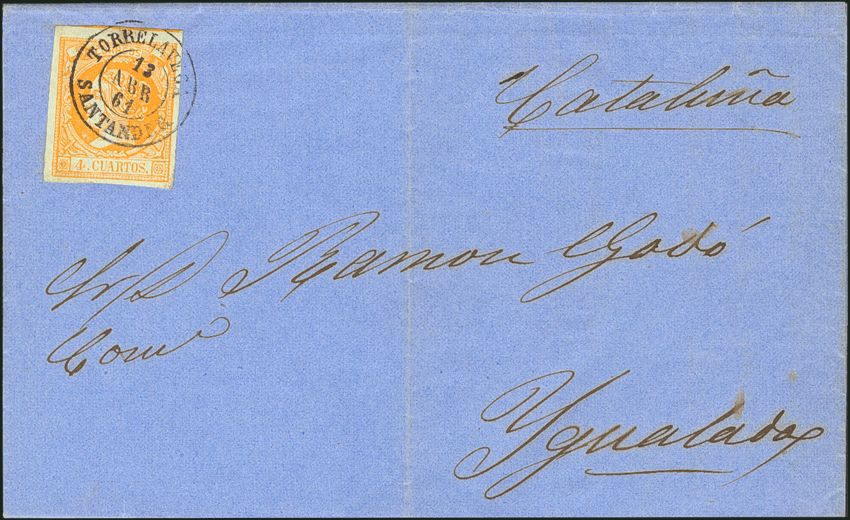 TORRELAVEGA
13
ABR
61
SANTANDER
4. CUARTOS.
Cataluña
Sr D Ramon Godó
Comº
Ygualada